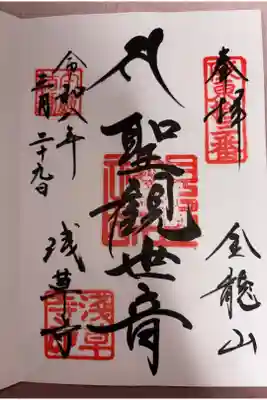 奉拝
坂東十三番
金龍山
聖観世音
令和八年
三月二十九日
浅草寺
淺草
寺印